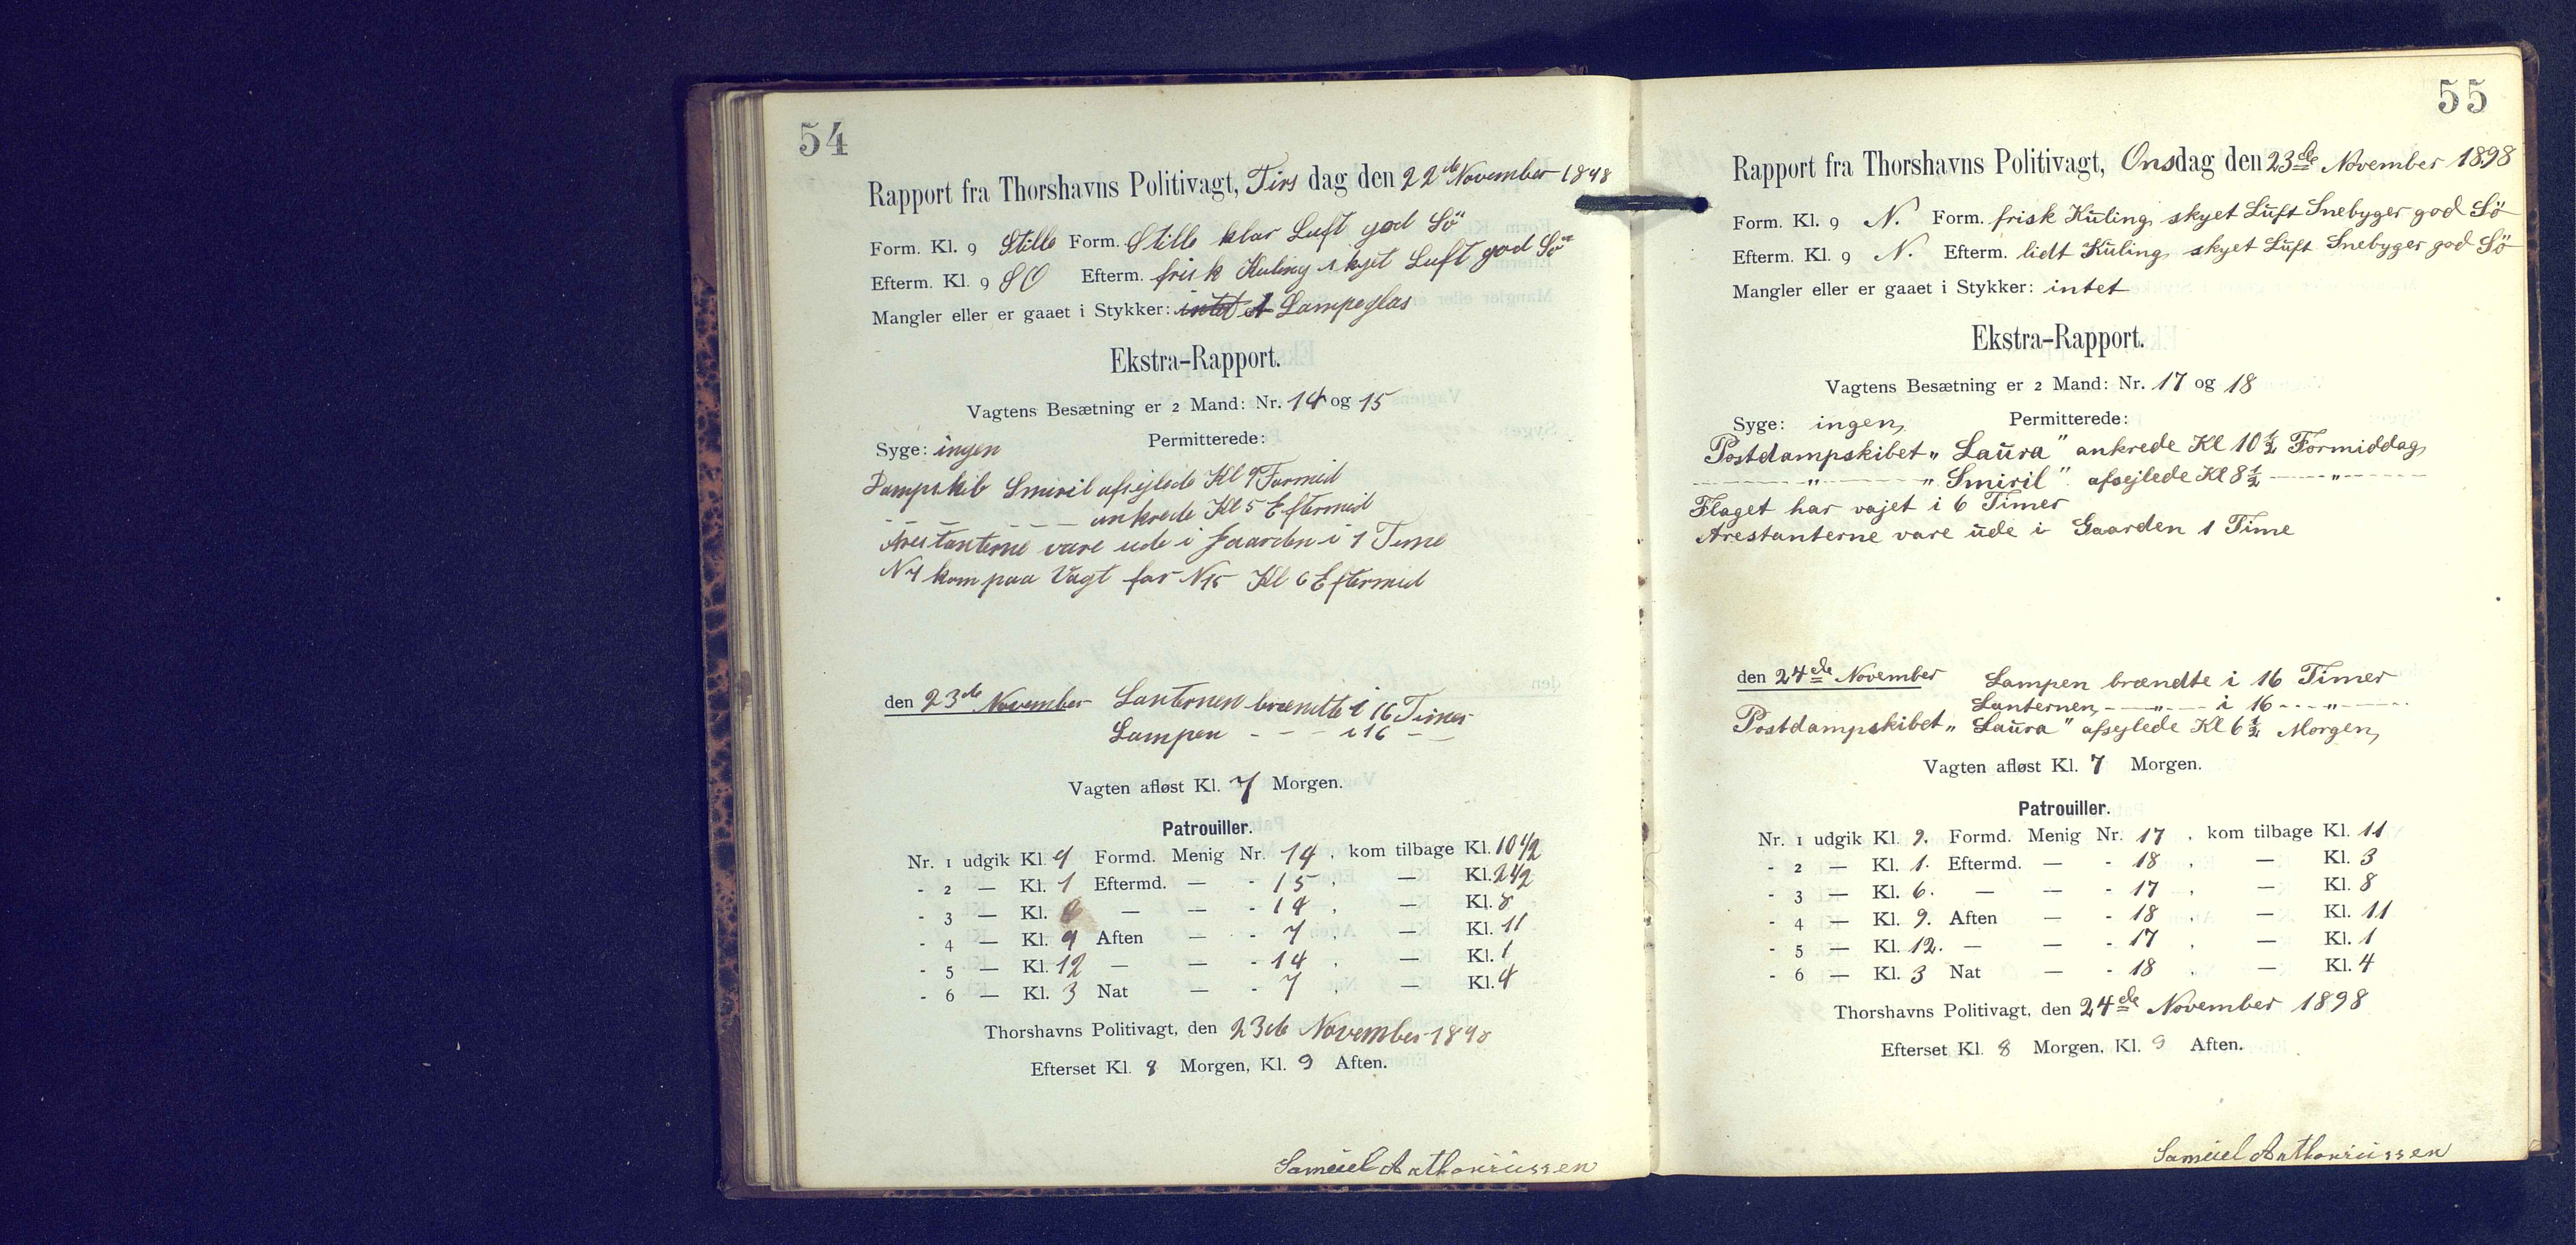 54
Rapport fra Thorshavns Politivagt, Tirsdag den 22de November 1898
Form. Kl. 9 Stille Form. Stille klar Luft god Sö
Efterm. Kl. 9 SO Efterm. frisk Kuling skyet Luft god Sö
Mangler eller er gaaet i Stykker: intet 1 Lampeglas
Ekstra-Rapport.
Vagtens Besætning er 2 Mand: Nr. 14 og 15
Syge: ingen Permitterede:
Dampskib Smiril afsejlede Kl 9 Formid
— — — — — ankrede Kl 5 Eftermid
Arestanterne vare ude i Gaarden i 1 Time
N 7 kom paa Vagt for N 15 Kl 6 Eftermid
den 23de November Lanternen brændte i 16 Timer
Lampen - - - i 16 — —
Vagten afløst Kl. 7 Morgen.
Patrouiller.
Nr. 1 udgik Kl. 9 Formd. Menig Nr. 14, kom tilbage Kl. 10 1/2
- 2 — Kl. 1 Eftermd. — - 15, — Kl. 2 1/2
- 3 — Kl. 6 — — - 14, — Kl. 8
- 4 — Kl. 9 Aften — - 7, — Kl. 11
- 5 — Kl. 12 — — - 14, — Kl. 1
- 6 — Kl. 3 Nat — - 7, — Kl. 4
Thorshavns Politivagt, den 23de November 1898
Efterset Kl. 8 Morgen, Kl. 9 Aften.
Samuel Anthoniussen
55
Rapport fra Thorshavns Politivagt, Onsdag den 23de November 1898
Form. Kl. 9 N. Form. frisk Kuling, skyet Luft Snebyger god Sö
Efterm. Kl. 9 N. Efterm. lidt Kuling, skyet Luft Snebyger god Sö
Mangler eller er gaaet i Stykker: intet
Ekstra-Rapport.
Vagtens Besætning er 2 Mand: Nr. 17 og 18
Syge: ingen, Permitterede:
Postdampskibet „Laura" ankrede Kl 10 1/2 Formiddag,
-----„----- „Smiril" afsejlede Kl 8 1/2 ----„----
Flaget har vajet i 6 Timer
Arestanterne vare ude i Gaarden 1 Time
den 24de November Lampen brændte i 16 Timer
Lanternen, --„-- i 16 --„--
Postdampskibet „Laura" afsejlede Kl 6 1/2 Morgen,
Vagten afløst Kl. 7 Morgen.
Patrouiller.
Nr. 1 udgik Kl. 9. Formd. Menig Nr. 17, kom tilbage Kl. 11
- 2 — Kl. 1. Eftermd. — - 18, — Kl. 3
- 3 — Kl. 6. — — - 17, — Kl. 8
- 4 — Kl. 9. Aften — - 18, — Kl. 11
- 5 — Kl. 12. — — - 17, — Kl. 1
- 6 — Kl. 3 Nat — - 18, — Kl. 4
Thorshavns Politivagt, den 24de November 1898
Efterset Kl. 8 Morgen, Kl. 9 Aften.
Samuel Anthoniussen